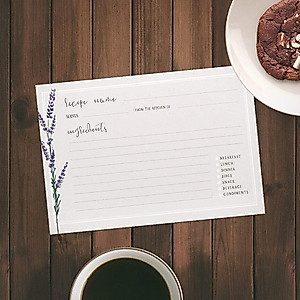 recipe name
SERVES
FROM THE KITCHEN OF
ingredients
BREAKFAST
LUNCH
DINNER
SIDES
SNACK
BEVERAGE
CONDIMENTS